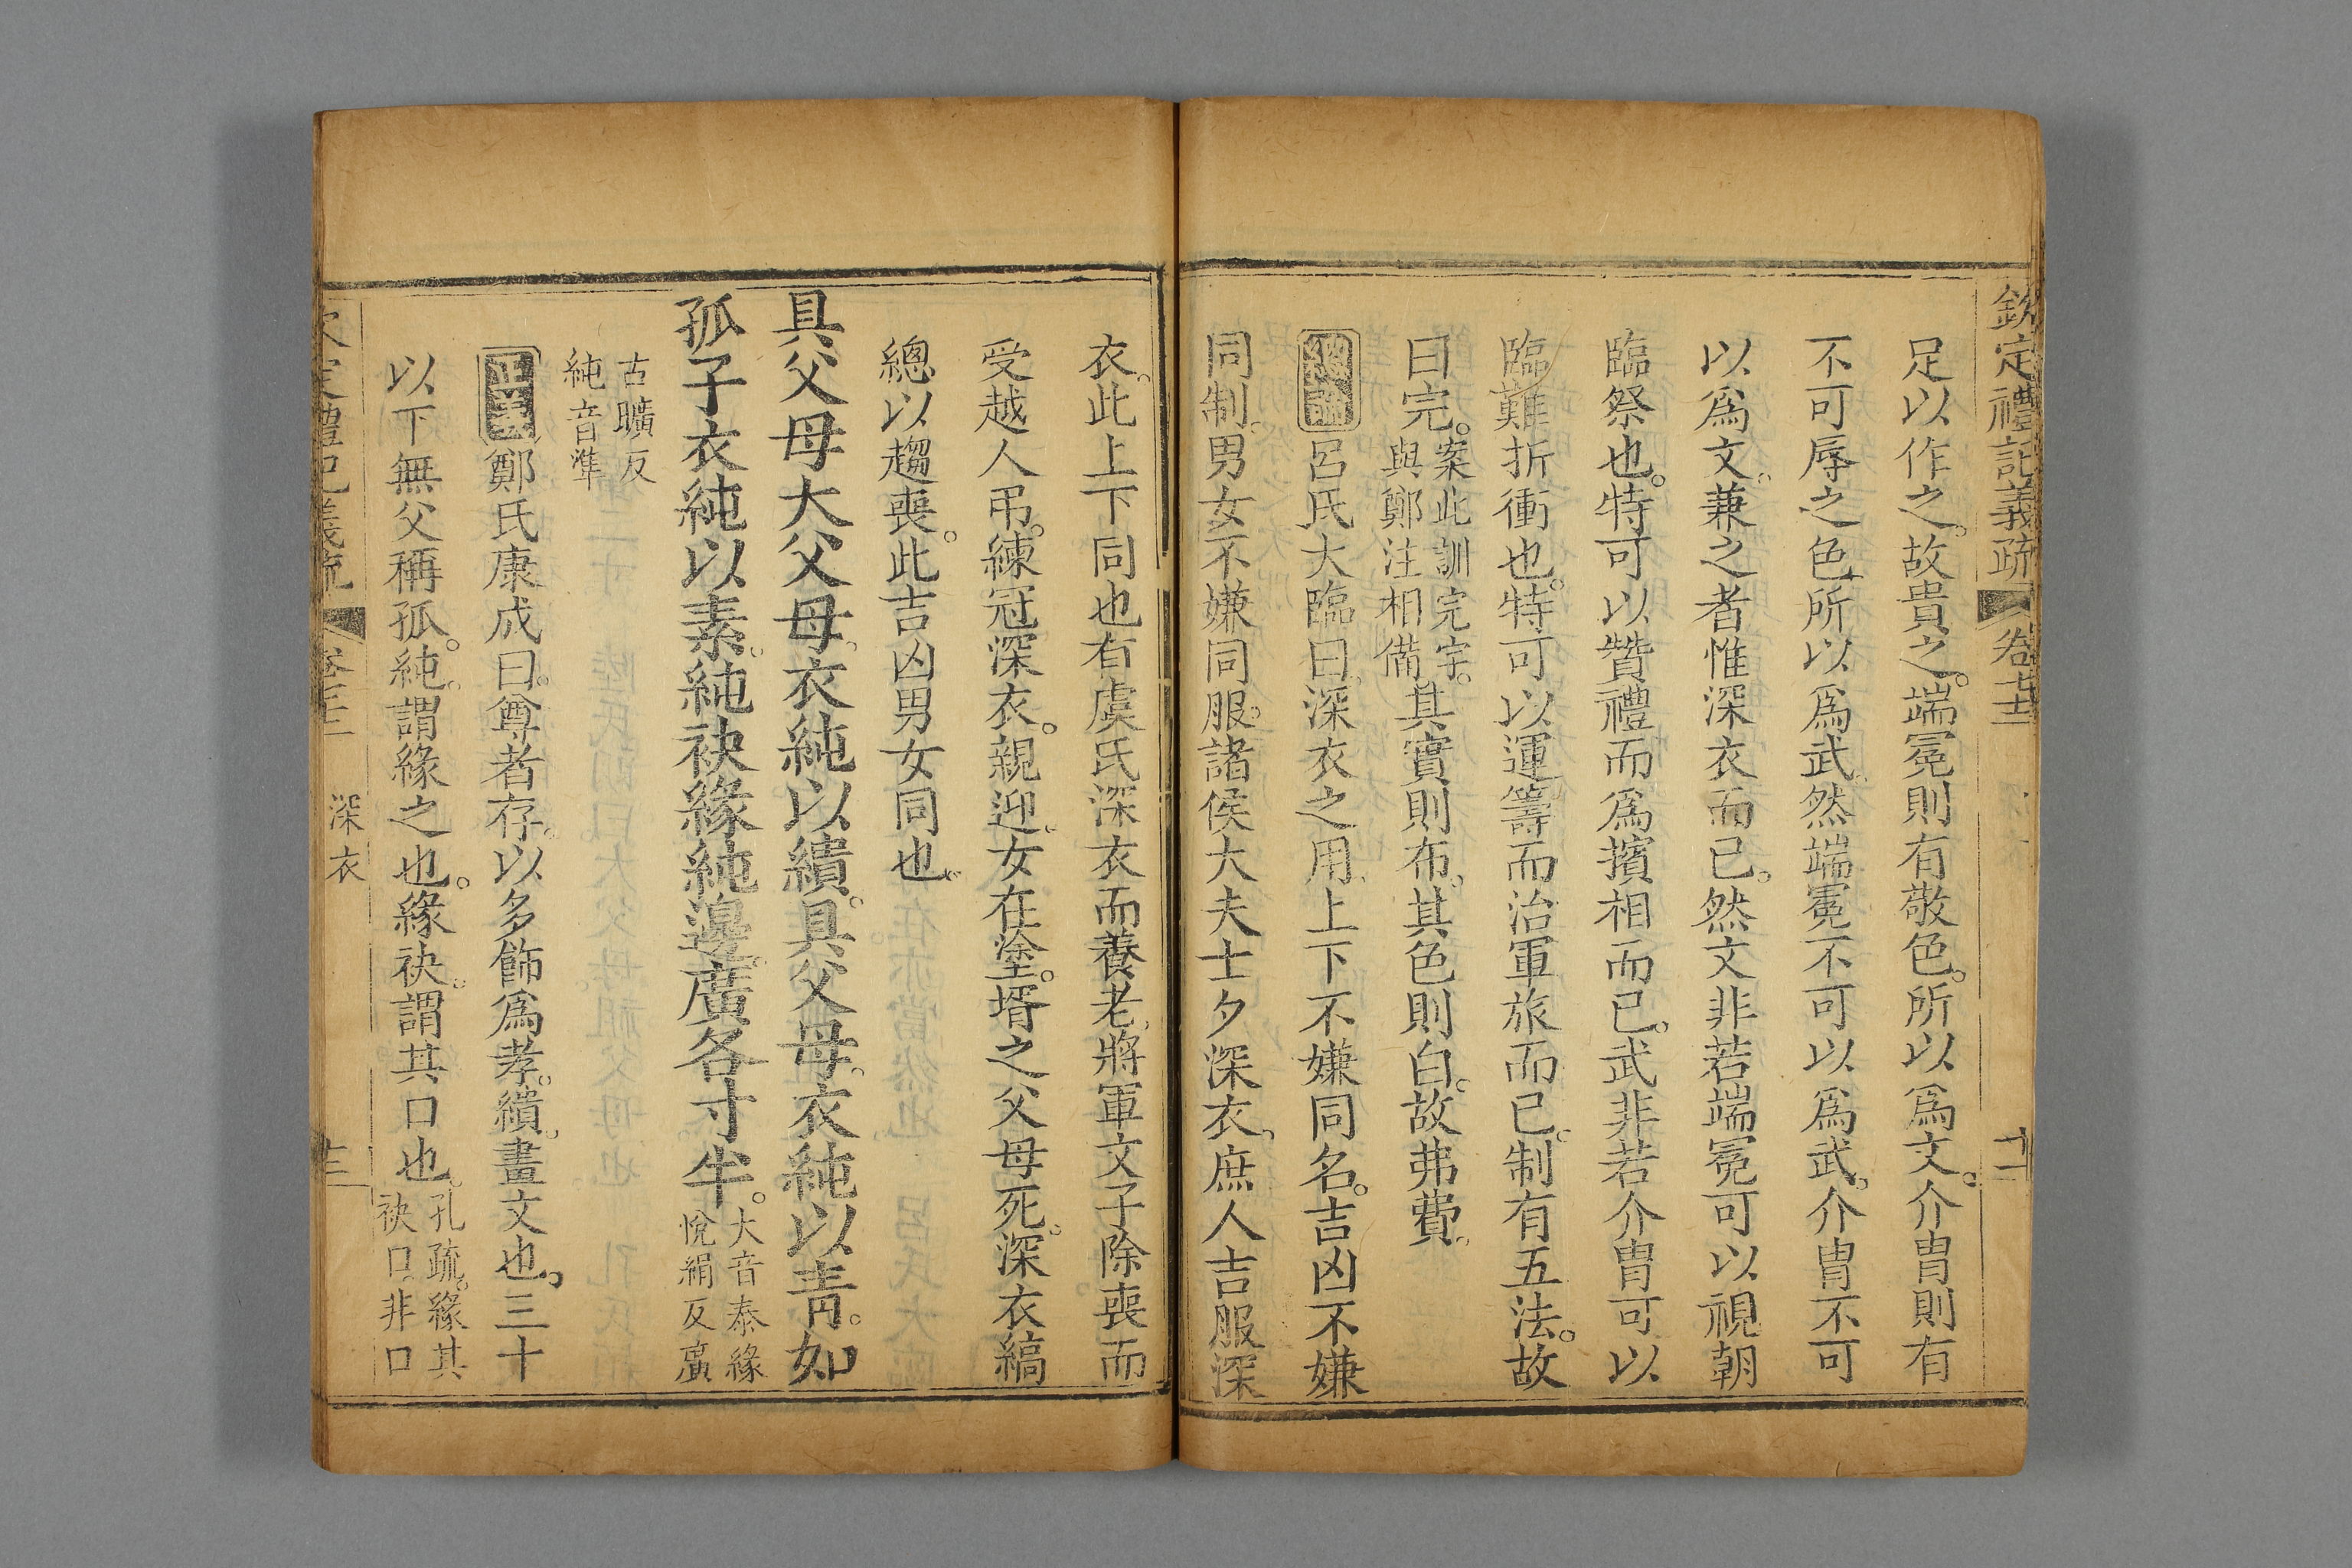 欽定禮記義疏 卷七十三 十二
足以作之。故貴之。端冕則有敬色。所以爲文。介胄則有
不可辱之色。所以爲武。然端冕不可以爲武。介胄不可
以爲文。兼之者惟深衣而已。然文非若端冕可以視朝
臨祭也。特可以贊禮而爲擯相而已。武非若介胄可以
臨難折衝也。特可以運籌而治軍旅而已。制有五法。故
曰完。案此訓完字。與鄭注相備。其實則布。其色則白。故弗費。
總論呂氏大臨曰。深衣之用。上下不嫌同名。吉凶不嫌
同制。男女不嫌同服。諸侯大夫士夕深衣。庶人吉服深
衣。此上下同也有虞氏深衣而養老。將軍文子除喪而
受越人弔。練冠深衣。親迎。女在塗。壻之父母死。深衣縞
總以趨喪。此吉凶男女同也。
具父母大父母。衣純以繢。具父母。衣純以青。如
孤子衣純以素。純袂緣純邊。廣各寸半。大音泰緣悅絹反廣
古曠反純音準
正義鄭氏康成曰。尊者存。以多飾爲孝。繢。畫文也。三十
以下無父稱孤。純。謂緣之也。緣袂。謂其口也。孔疏。緣其袂口。非口
深衣 十三